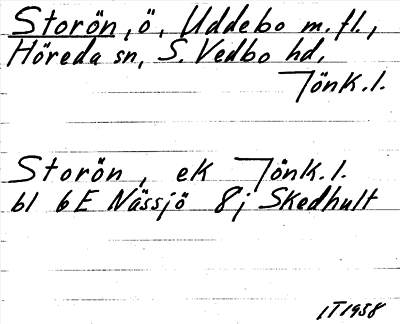 Storön, ö, Uddebo m. fl.,
Höreda sn, S. Vedbo hd.
Jönk. l.
Storön, ek Jönk. l.
bl 6E Nässjö 8j Skedhult
IT1958